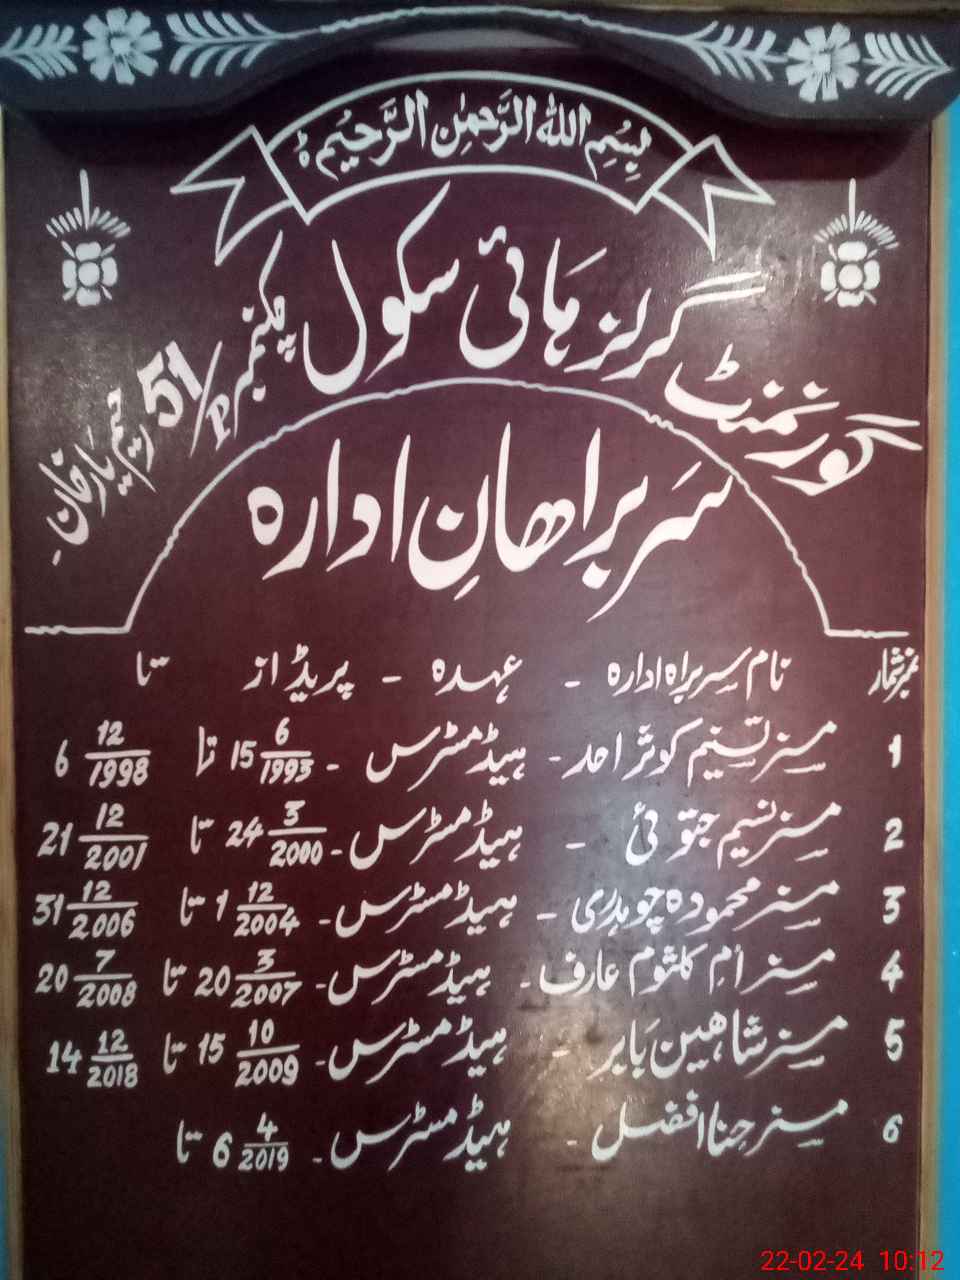 بِسْمِ اللهِ الرَّحمٰنِ الرَّحِیْمِ ہ
گورنمنٹ گرلز ہائی سکول چکنمبر 51/P رحیم یار خان
سربراھانِ ادارہ
نمبر شمار نام سربراہ ادارہ - عہدہ - پریڈ از تا
1 مسز تسنیم کوثر احمد - ہیڈ مسٹرس - 15 6/1993 تا 6 12/1998
2 مسز نسیم جتوئی - ہیڈ مسٹرس - 24 3/2000 تا 21 12/2001
3 مسز محمودہ چوہدری - ہیڈ مسٹرس - 1 12/2004 تا 31 12/2006
4 مسز اُمِ کلثوم عارف - ہیڈ مسٹرس - 20 3/2007 تا 20 7/2008
5 مسز شاھین بابر - ہیڈ مسٹرس - 15 10/2009 تا 14 12/2018
6 مسز حِنا افضل - ہیڈ مسٹرس - 6 4/2019 تا
22-02-24 10:12